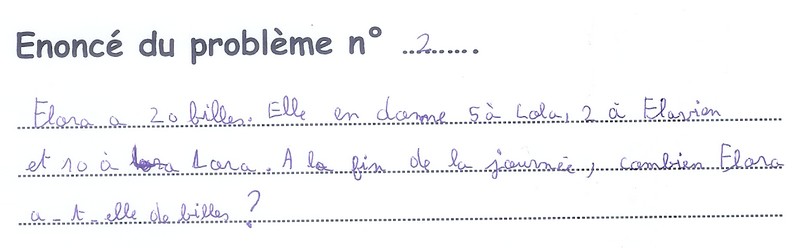 Enoncé du problème n° ..2.......
Flora a 20 billes. Elle en donne 5 à Lola, 2 à Flavien
et 10 à Lara. A la fin de la journée, combien Flora
a-t-elle de billes ?